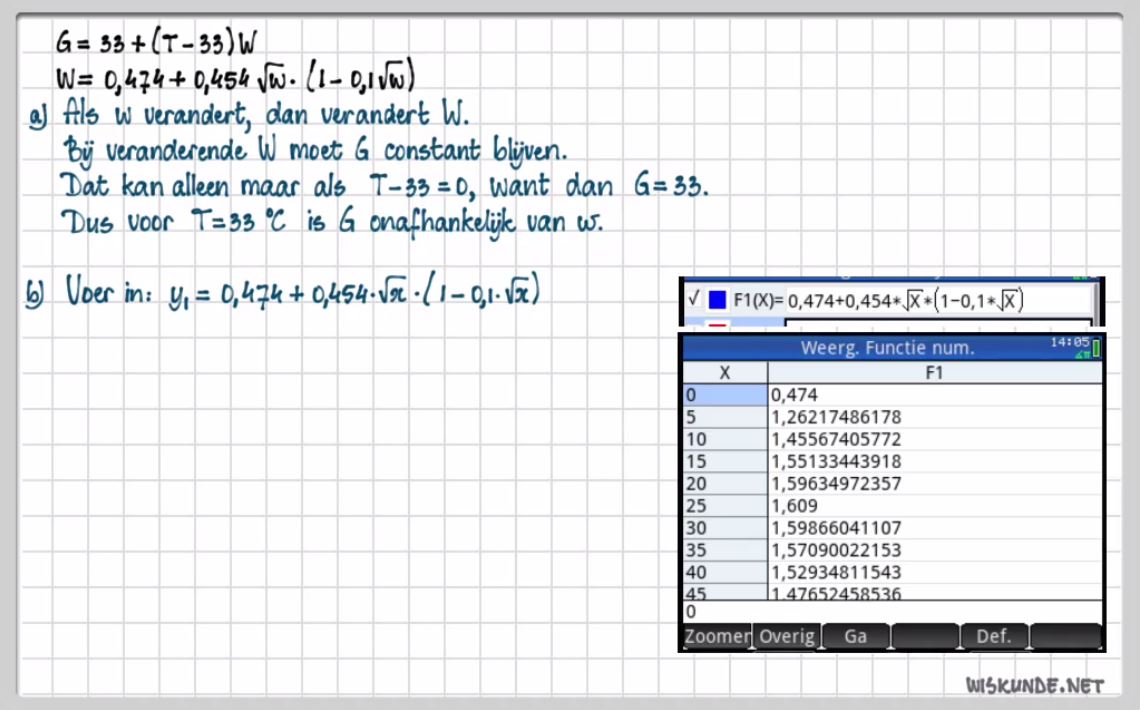 G = 33 + (T - 33)W
W = 0,474 + 0,454 √w · (1 - 0,1√w)
a) Als w verandert, dan verandert W.
Bij veranderende W moet G constant blijven.
Dat kan alleen maar als T - 33 = 0, want dan G = 33.
Dus voor T = 33 °C is G onafhankelijk van w.
b) Voer in: y₁ = 0,474 + 0,454·√x ·(1 - 0,1·√x)
√ F1(X)= 0,474+0,454*√X*(1-0,1*√X)
Weerg. Functie num. 14:05
X F1
0 0,474
5 1,26217486178
10 1,45567405772
15 1,55133443918
20 1,59634972357
25 1,609
30 1,59866041107
35 1,57090022153
40 1,52934811543
45 1,47652458536
0
Zoomer Overig Ga Def.
WISKUNDE.NET